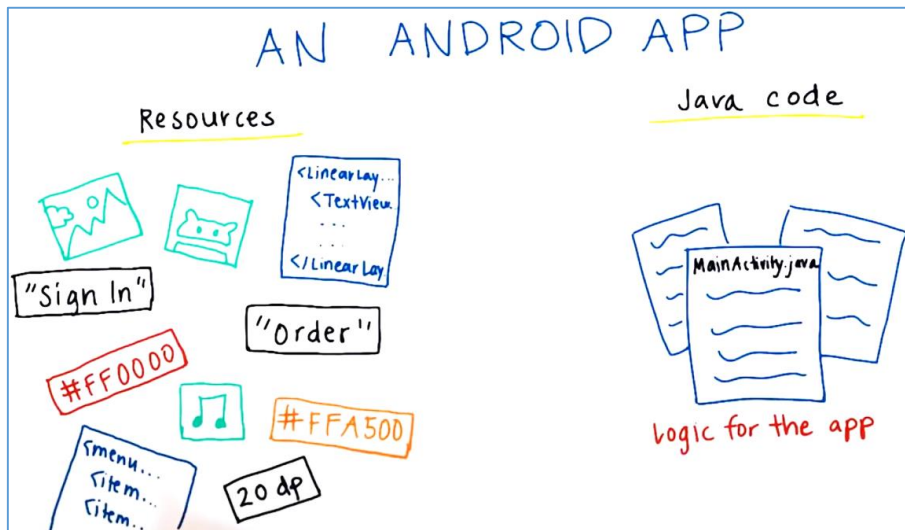 AN ANDROID APP
Resources
Java code
<LinearLay...
<TextView...
...
...
</LinearLay
"Sign In"
"Order"
#FF0000
#FFA500
<menu...
<item...
<item...
20 dp
MainActivity.java
Logic for the app